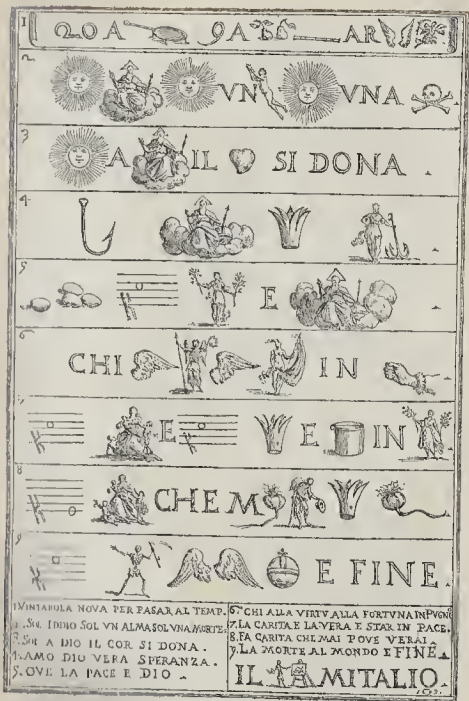 1 2O A 9A AR
2 VN VNA
3 A IL SI DONA .
4
5 E
6 CHI IN
7 E E IN
8 CHE M
9 E FINE .
1 VINTAROLA NOVA PER PASAR AL TEMP.
2. SOL IDDIO SOL VN ALMA SOL VNA MORTE.
3. SOL A DIO IL COR SI DONA.
4. AMO DIO VERA SPERANZA.
5. OVE LA PACE E DIO .
6. CHI ALLA VIRTV, ALLA FORTVNA IN PVGNI
7. LA CARITA E LA VERA E STAR IN PACE.
8. FA CARITA CHE MAI POVE VERAI.
9. LA MORTE AL MONDO E FINE.
IL MITALIO.